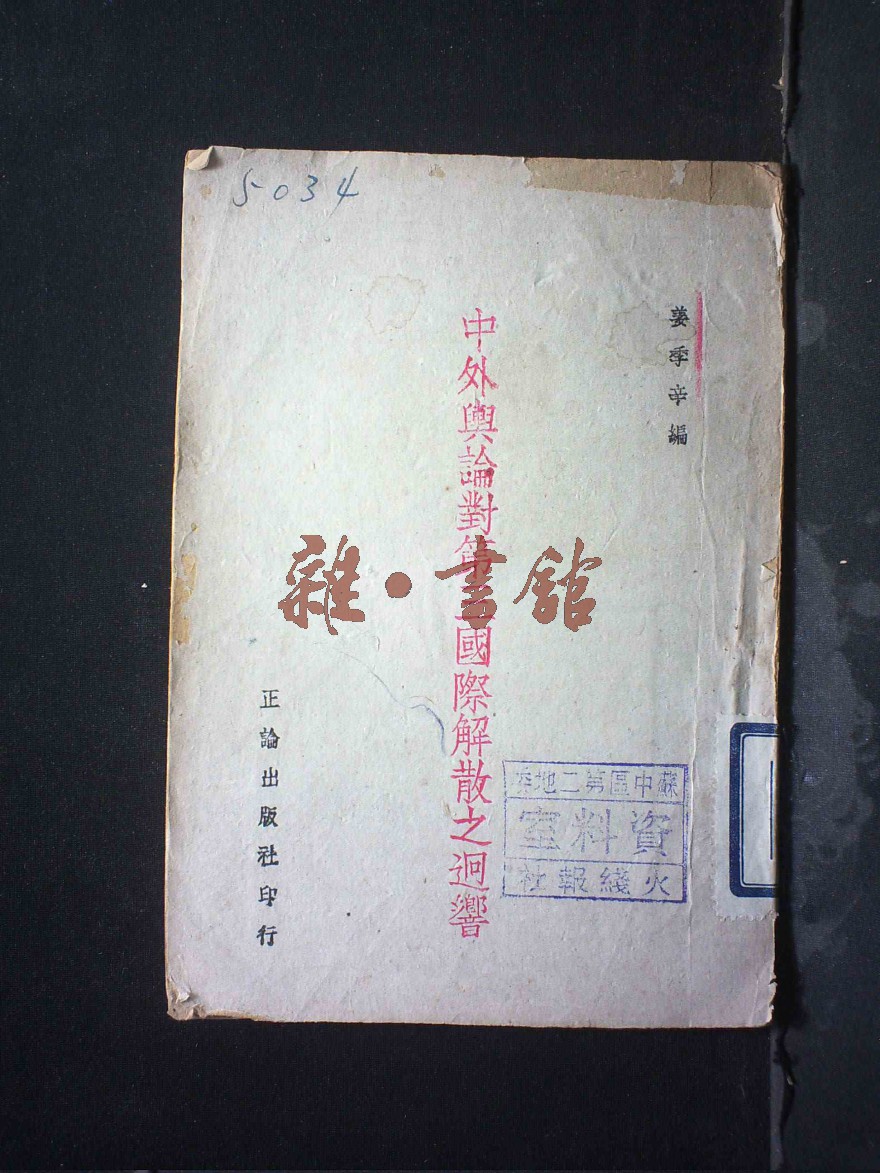 5034
姜季辛編
中外輿論對第三國際解散之迥響
雜·書館
正論出版社印行
蘇中區第二地委
資料室
火綫報社